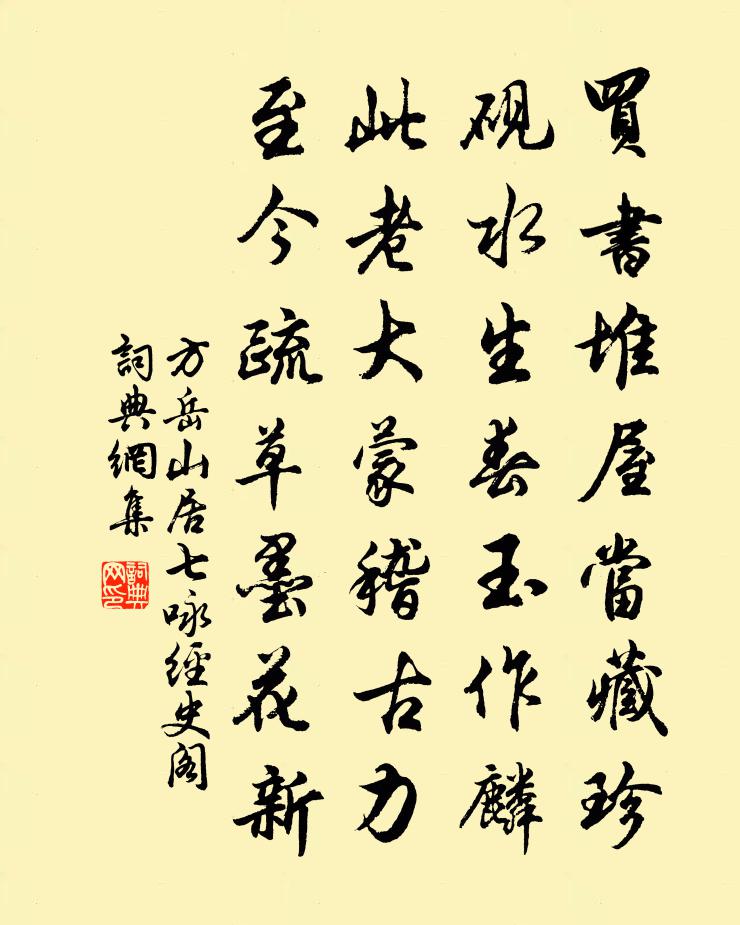 買書堆屋當藏珍
硯水生春玉作麟
此老大蒙稽古力
至今疏草墨花新
方岳山居七咏經史阁
詞典網集
詞典
网印